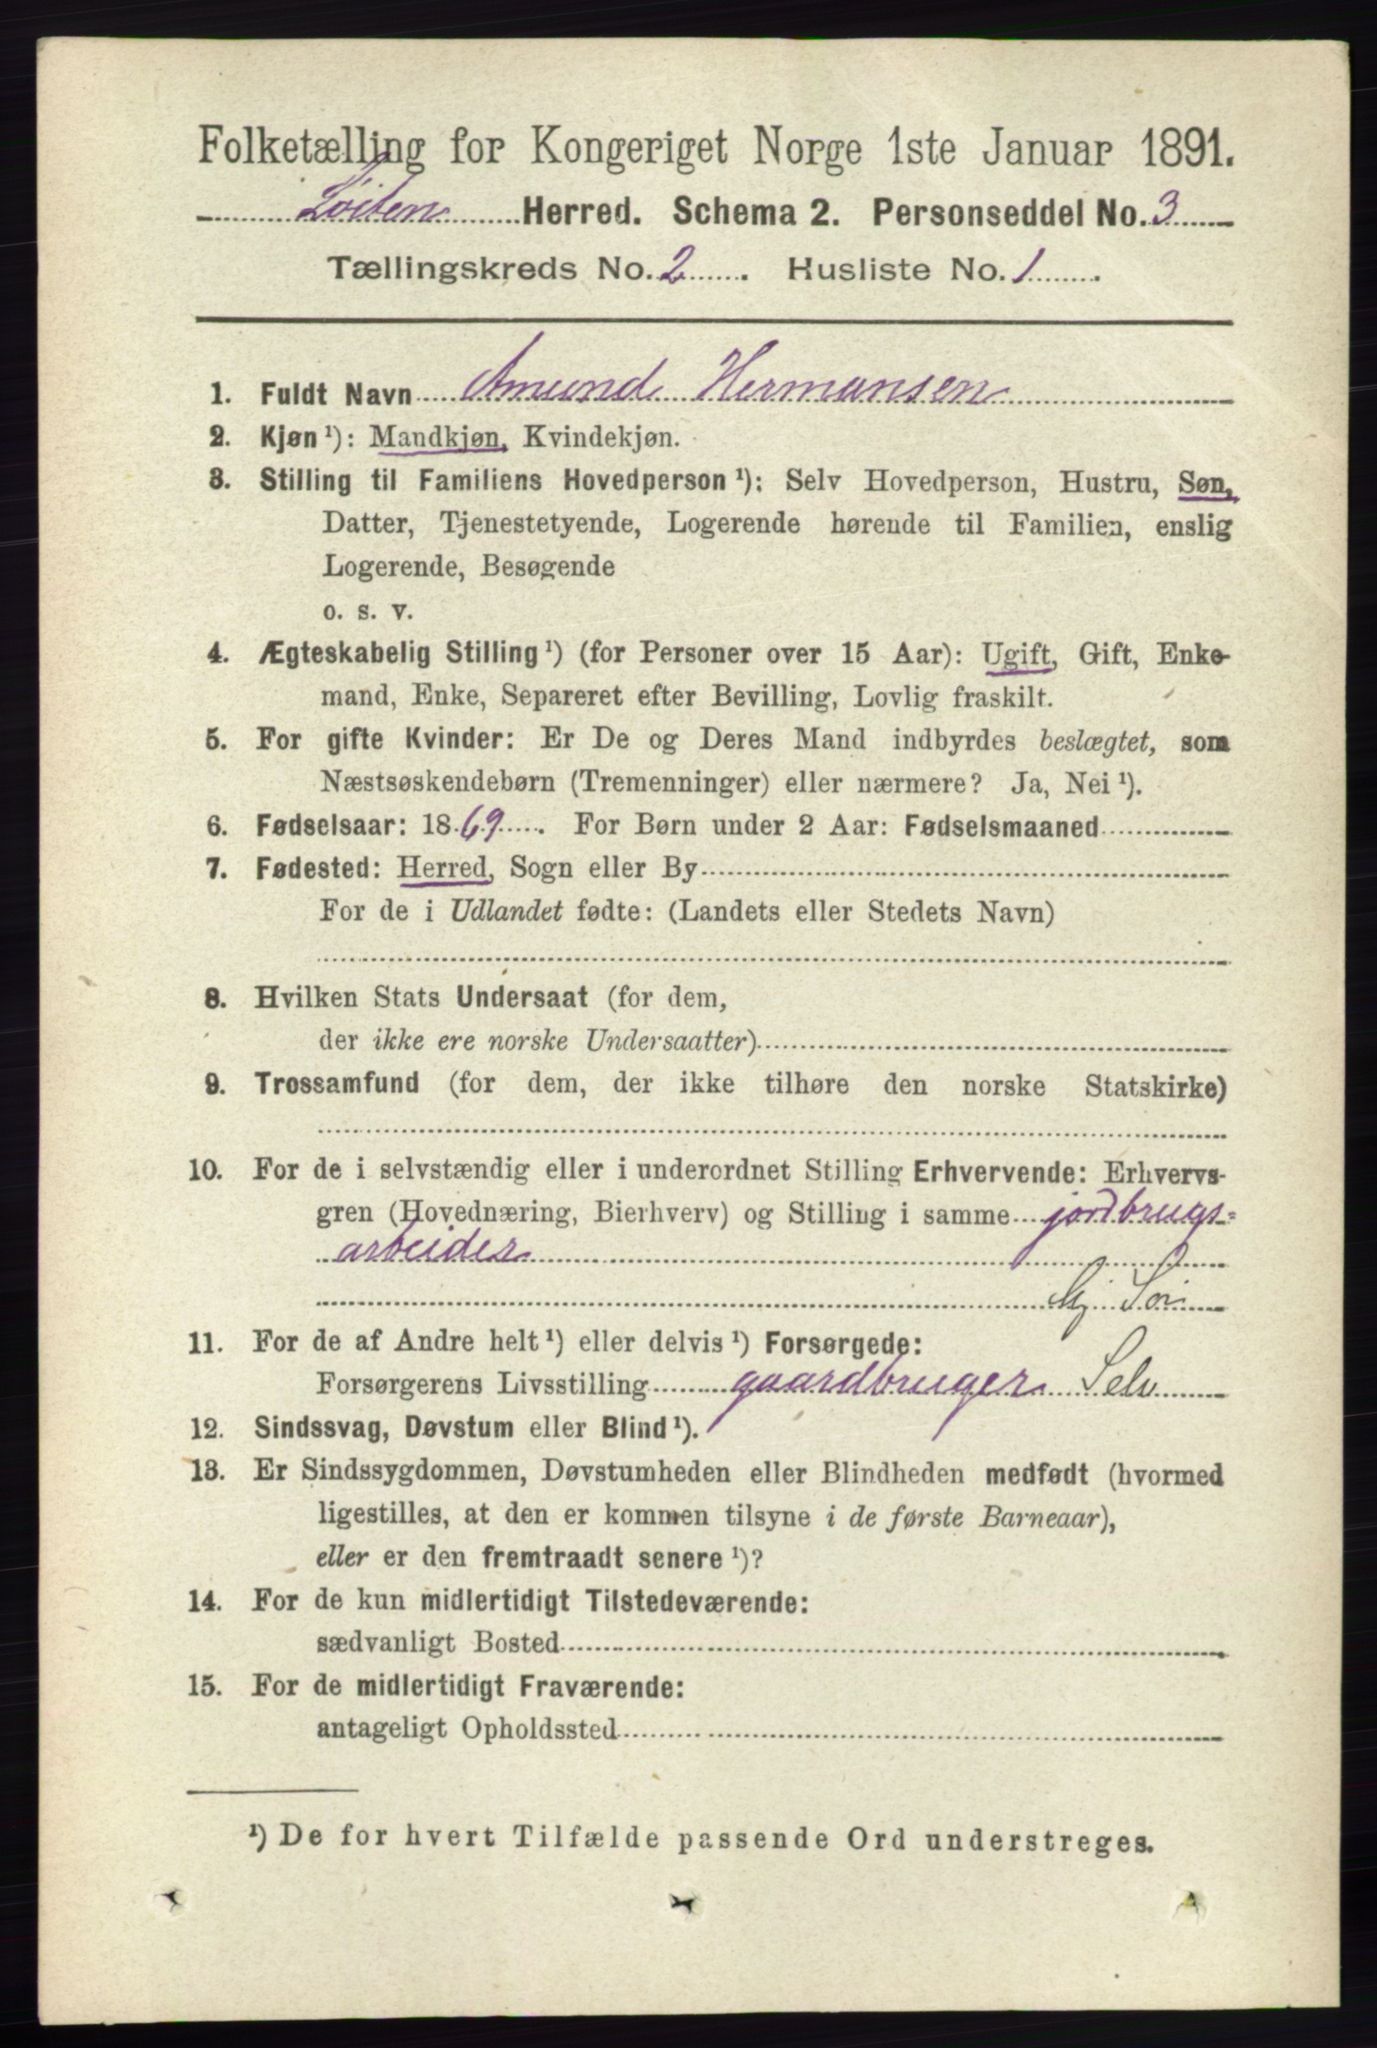 Folketælling for Kongeriget Norge 1ste Januar 1891.
Løiten Herred. Schema 2. Personseddel No. 3
Tællingskreds No. 2. Husliste No. 1.
1. Fuldt Navn Amund Hermansen
2. Kjøn¹): Mandkjøn, Kvindekjøn.
3. Stilling til Familiens Hovedperson¹): Selv Hovedperson, Hustru, Søn,
Datter, Tjenestetyende, Logerende hørende til Familien, enslig
Logerende, Besøgende
o. s. v.
4. Ægteskabelig Stilling¹) (for Personer over 15 Aar): Ugift, Gift, Enke-
mand, Enke, Separeret efter Bevilling, Lovlig fraskilt.
5. For gifte Kvinder: Er De og Deres Mand indbyrdes beslægtet, som
Næstsøskendebørn (Tremenninger) eller nærmere? Ja, Nei¹).
6. Fødselsaar: 1869. For Børn under 2 Aar: Fødselsmaaned
7. Fødested: Herred, Sogn eller By
For de i Udlandet fødte: (Landets eller Stedets Navn)
8. Hvilken Stats Undersaat (for dem,
der ikke ere norske Undersaatter)
9. Trossamfund (for dem, der ikke tilhøre den norske Statskirke)
10. For de i selvstændig eller i underordnet Stilling Erhvervende: Erhvervs-
gren (Hovednæring, Bierhverv) og Stilling i samme jordbrugs-
arbeider
11. For de af Andre helt¹) eller delvis¹) Forsørgede:
Forsørgerens Livsstilling gaardbruger Selv
12. Sindssvag, Døvstum eller Blind¹).
13. Er Sindssygdommen, Døvstumheden eller Blindheden medfødt (hvormed
ligestilles, at den er kommen tilsyne i de første Barneaar),
eller er den fremtraadt senere¹)?
14. For de kun midlertidigt Tilstedeværende:
sædvanligt Bosted
15. For de midlertidigt Fraværende:
antageligt Opholdssted
¹) De for hvert Tilfælde passende Ord understreges.